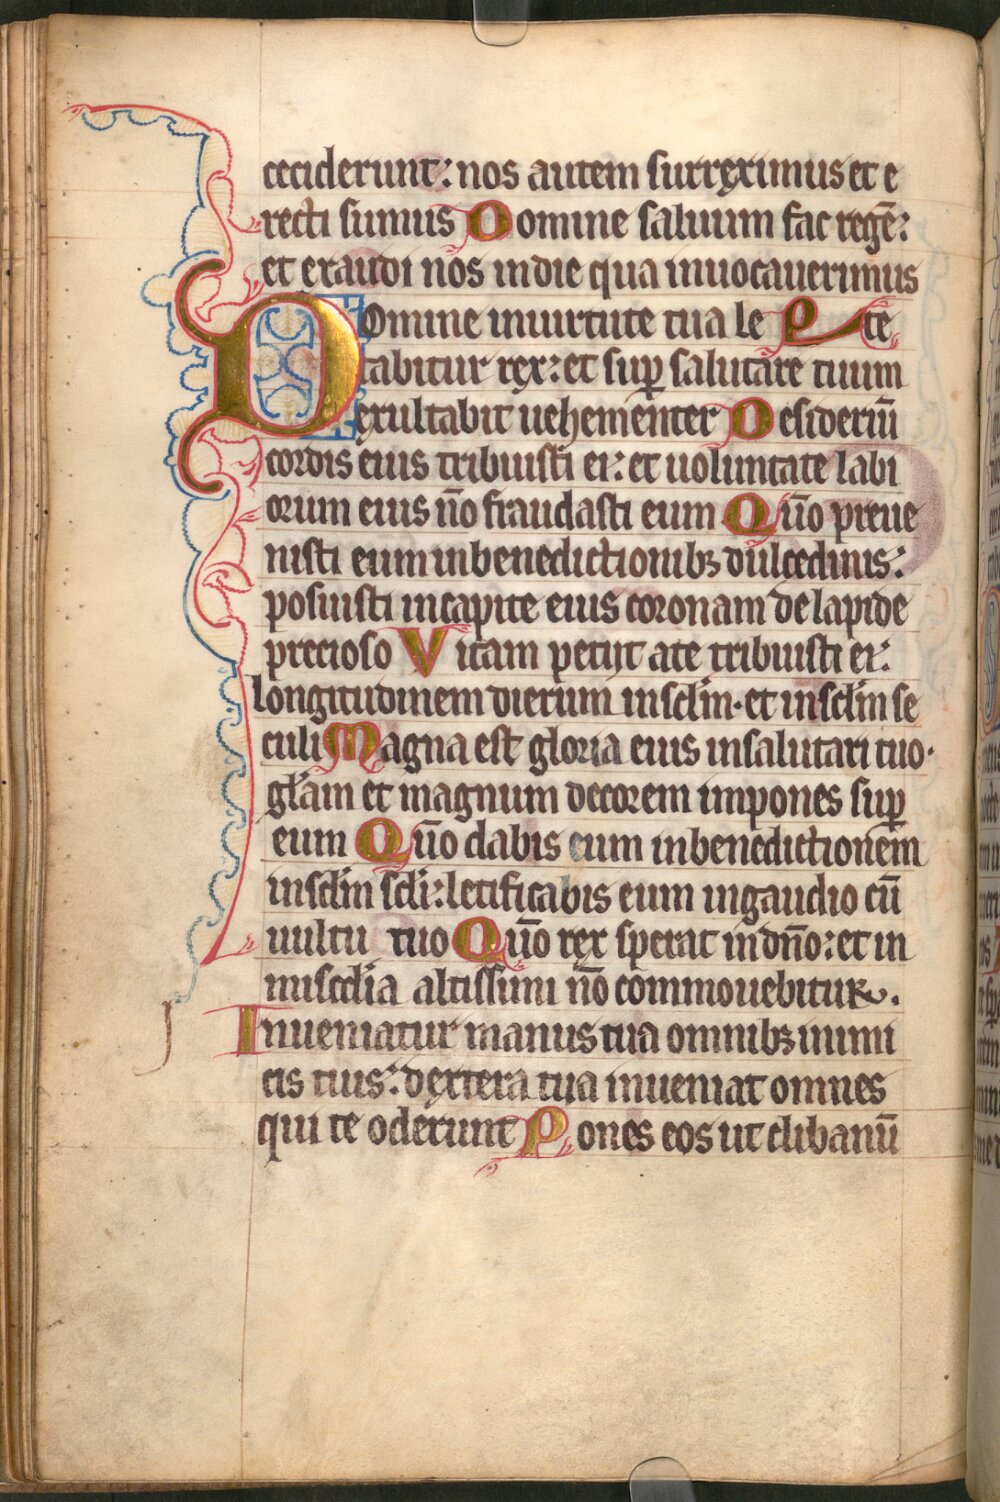 ceciderunt: nos autem surreximus et e
recti sumus Domine saluum fac regē:
et exaudi nos indie qua inuocauerimus
Domine inuirtute tua le Ps te
tabitur rex: et suꝑ salutare tuum
exultabit uehementer Desideriū
cordis eius tribuisti ei: et uoluntate labi
orum eius nō fraudasti eum Qūo preue
nisti eum inbenedictionibꝫ dulcedinis:
posuisti incapite eius coronam de lapide
precioso Vitam petijt ate tribuisti ei:
longitudinem dierum insclm̄· et insclm̄ se
culi Magna est gloria eius insalutari tuo·
glam̄ et magnum decorem impones suꝑ
eum Qūo dabis eum inbenedictionem
insclm̄ scli: letificabis eum ingaudio cū
uultu tuo Qūo rex sperat indn̄o: et in
misc̄dia altissimi nō commouebitur.
Inueniatur manus tua omnibꝫ inimi
cis tuis: dextera tua inueniat omnes
qui te oderunt Pones eos ut clibanū